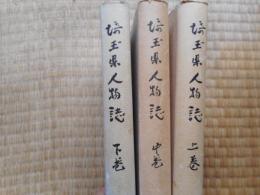 埼玉県人物誌 上巻
埼玉県人物誌 中巻
埼玉県人物誌 下巻